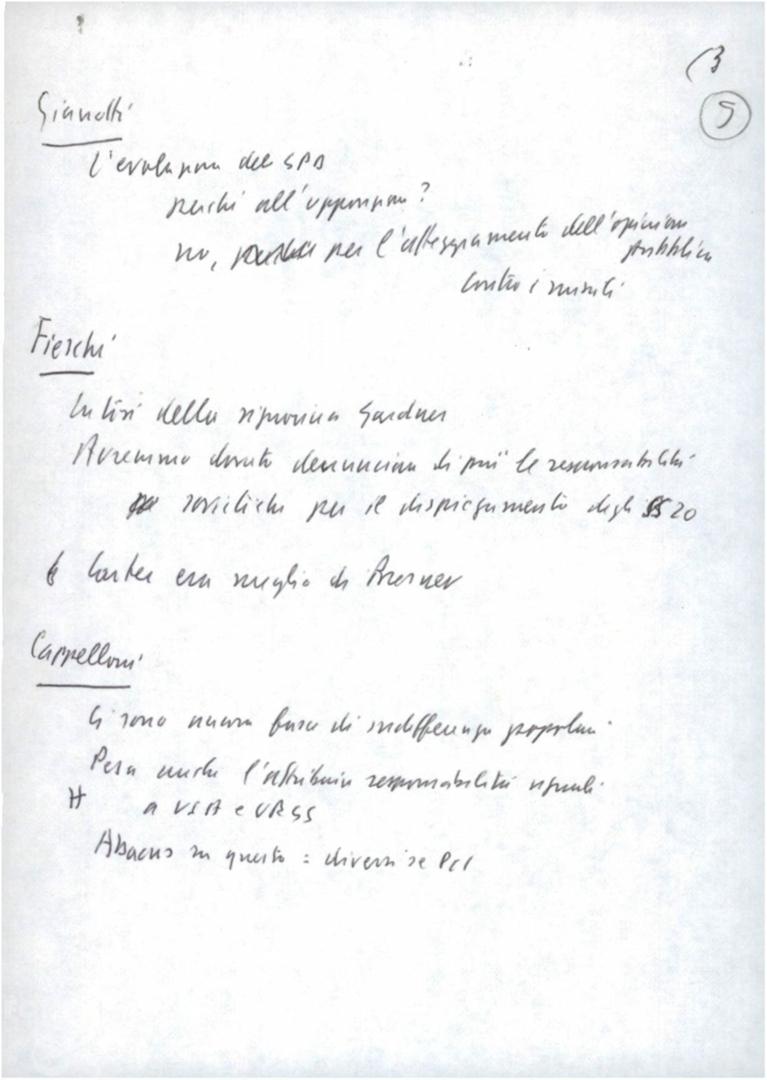 (3
5
Gianotti
L'evoluzione del SPD
perché all'opposizione?
no, per l'atteggiamento dell'opinione
pubblica
contro i missili
Fieschi
della signorina Gardner
Avremmo dovuto denunciare di più le responsabilità
sovietiche per il dispiegamento degli SS20
Carter era meglio di
Cappelloni
Ci sono ancora fasce di indifferenza popolare
Pesa anche l'attribuire responsabilità uguali
a USA e URSS
su questo : diversi se PCI